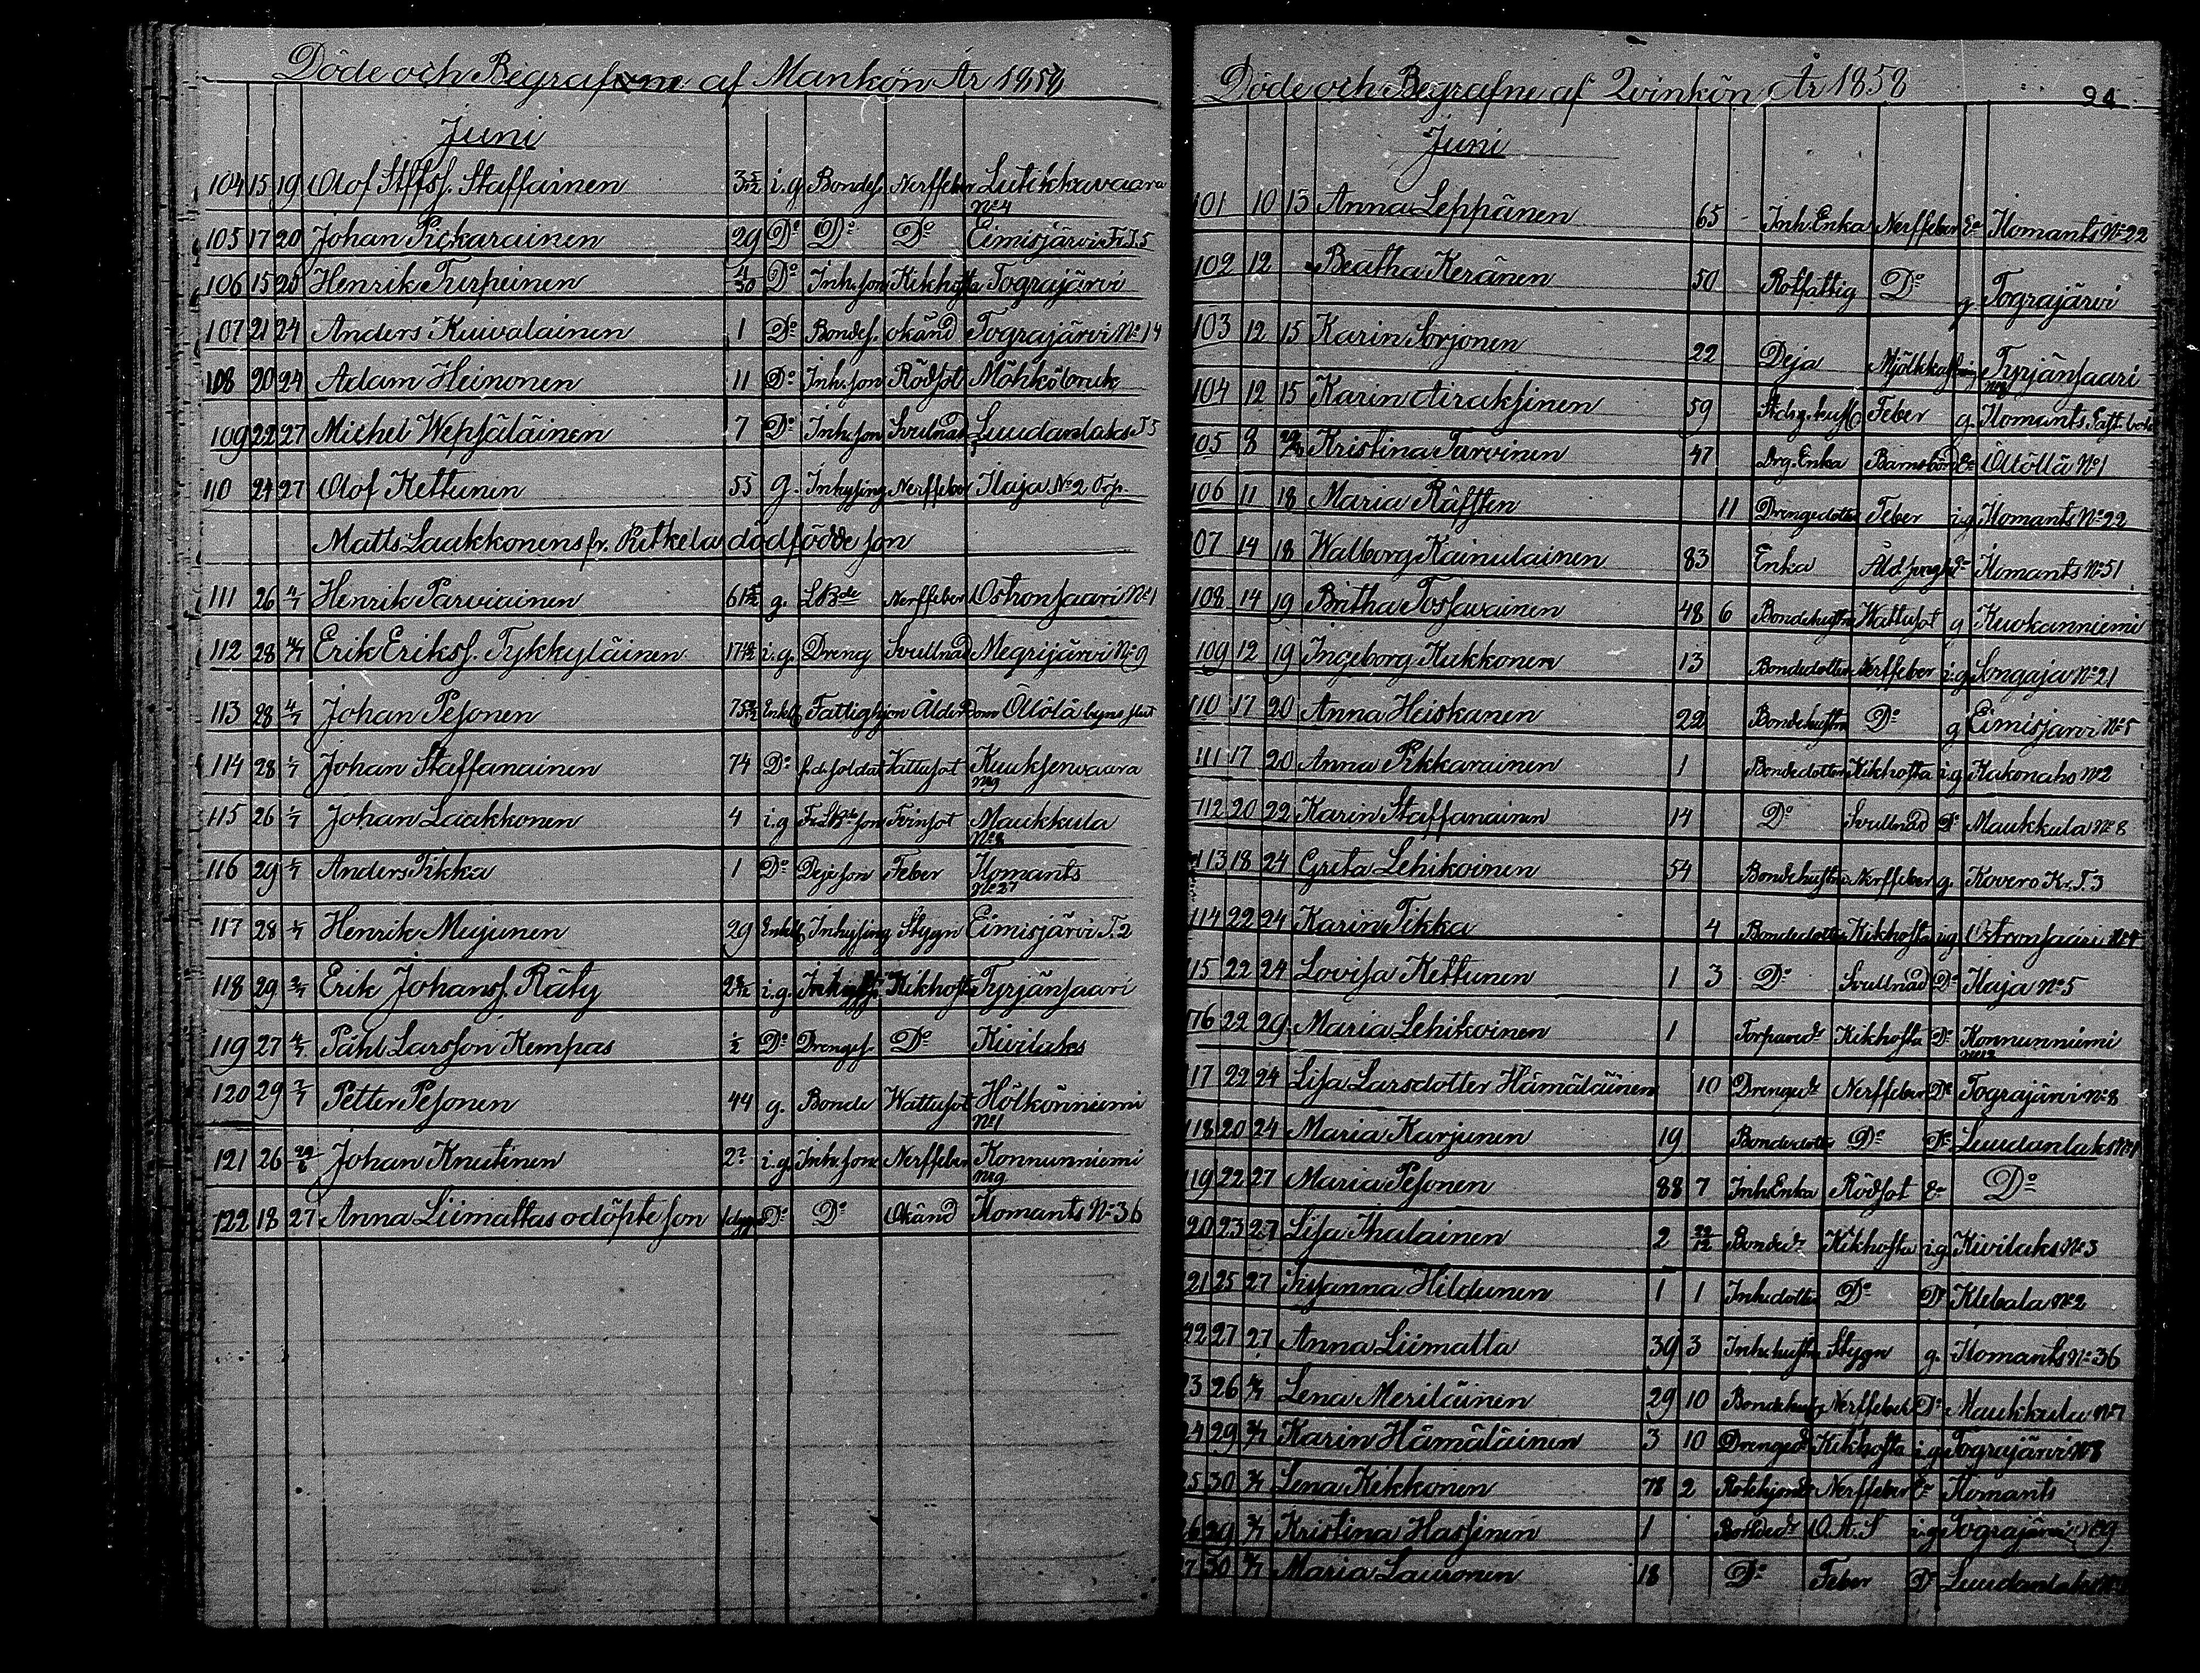 Döde och Begrafne af Mankön År 1858
Juni
104 15 19 Olof Stffss. Staffainen 3 5/12 i.g. Bondes. Nerffeber Lutikkavaara
No 4
105 17 20 Johan Pickarainen 29 Do Do Do Eimisjärvi Fr. T. 5
106 15 20 Henrik Turpeinen 4/30 Do Inh. son Kikhosta Tograjärvi
107 21 24 Anders Kuivalainen 1 Do Bondes. okänd Tograjärvi No 14
108 20 24 Adam Heinonen 11 Do Inh. son Rödsot Möhkö bruk
109 22 27 Michel Wepsäläinen 7 Do Inh. son Svullnad Luudanlaks T 5
110 24 27 Olof Kettunen 55 g. Inhysing Nerffeber Ilaja No 2
Matts Laakkonens fr. Putkela dödfödde son
111 26 4/7 Henrik Parviainen 61 g. Nerffeber Ostronsaari No 1
112 28 4/7 Erik Erikss. Tykkyläinen 17 i.g. Dreng Svullnad Megrijärvi No 9
113 28 4/7 Johan Pesonen 75 Enkl. Fattighjon Ålderdom Öllölä
114 28 Johan Staffanainen 74 Do f.d. soldat Vattusot Kuuksenvaara
No 9
115 26 Johan Laakkonen 4 i.g. Tvinsot Maukkula
No 8
116 29 Anders Tikka 1 Do Deje son Feber Ilomants
No 27
117 28 Henrik Mujunen 29 Enkl. Inhysing Stygn Eimisjärvi T. 2
118 29 Erik Johanss. Räty 2 i.g. Kikhosta Tyrjänsaari
119 27 4/7 Påhl Larsson Kempas 1/2 Do Drengs. Do Kivilaks
120 29 Petter Pesonen 44 g. Bonde Wattusot Hölkönniemi
No 1
121 26 29/6 Johan Knutinen 2 i.g. Inh. son Nerffeber Konnunniemi
No 9
122 18 27 Anna Liimattas odöpte son Do Do Okänd Ilomants No 36
Döde och Begrafne af Qvinkön År 1858 94
Juni
101 10 13 Anna Leppänen 65 Inh. Enka Nerffeber Ea Ilomants No 22
102 12 Beatha Keränen 50 Rotfattig Do g. Tograjärvi
103 12 15 Karin Sorjonen 22 Deja Tyrjänsaari
104 12 15 Karin Airaksinen 59 Feber g. Ilomants
105 8 Kristina Tarvinen 47 Drg. Enka Barnsbörd Ea Öllölä No 1
106 11 18 Maria Räfften 11 Drengedotter Feber i.g. Ilomants No 22
107 14 18 Walborg Kainulainen 83 Enka Do Ilomants No 51
108 14 19 Britha Tossavainen 48 6 Bondehustru Wattusot g Kuokanniemi
109 12 19 Ingeborg Kukkonen 13 Bondedotter Nerffeber i.g. Songaja No 21
110 17 20 Anna Heiskanen 22 Bondehustru Do g Eimisjärvi No 5
111 17 20 Anna Pikkarainen 1 Bondedotter Kikhosta i.g. Kakonaho No 2
112 20 22 Karin Staffanainen 14 Do Svullnad Do Maukkula No 8
113 18 24 Greta Lehikoinen 54 Bondehustru Nerffeber g. Kovero Kr. T. 3
114 22 24 Karin Tikka 4 Bondedotter Kikhosta i.g. Ostronsaari No 4
115 22 24 Lovisa Kettunen 1 3 Do Svullnad Do Ilaja No 5
116 22 29 Maria Lehikoinen 1 Torpared:r Kikhosta Do Konnunniemi
No 12
117 22 24 Lisa Larsdotter Hämäläinen 10 Drenged:r Nerffeber Do Tograjärvi No 8
118 20 24 Maria Karjunen 19 Bondedotter Do Do Luudanlaks No 1
119 22 27 Maria Pesonen 88 7 Inh. Enka Rödsot Ea Do
20 23 27 Lisa Ihalainen 2 22/12 Bonded:r Kikhosta i.g Kivilaks No 3
21 25 27 Susanna Hildunen 1 1 Inh. dotter Do Do Klebala No 2
22 27 27 Anna Liimatta 39 3 Inh. hustru Stygn g. Ilomants No 36
23 26 4/7 Lena Meriläinen 29 10 Bondehust Nerffeber Do Maukkula No 7
24 29 Karin Hämäläinen 3 10 Drenged:r Kikhosta i.g. Tograjärvi No 8
25 30 Lena Kekkonen 78 2 Nerffeber Ea Ilomants
26 29 Kristina Hassinen 1 Bonded:r i.g. Tograjärvi No 9
27 30 Maria Lauronen 18 Do Feber Do Luudanlaks